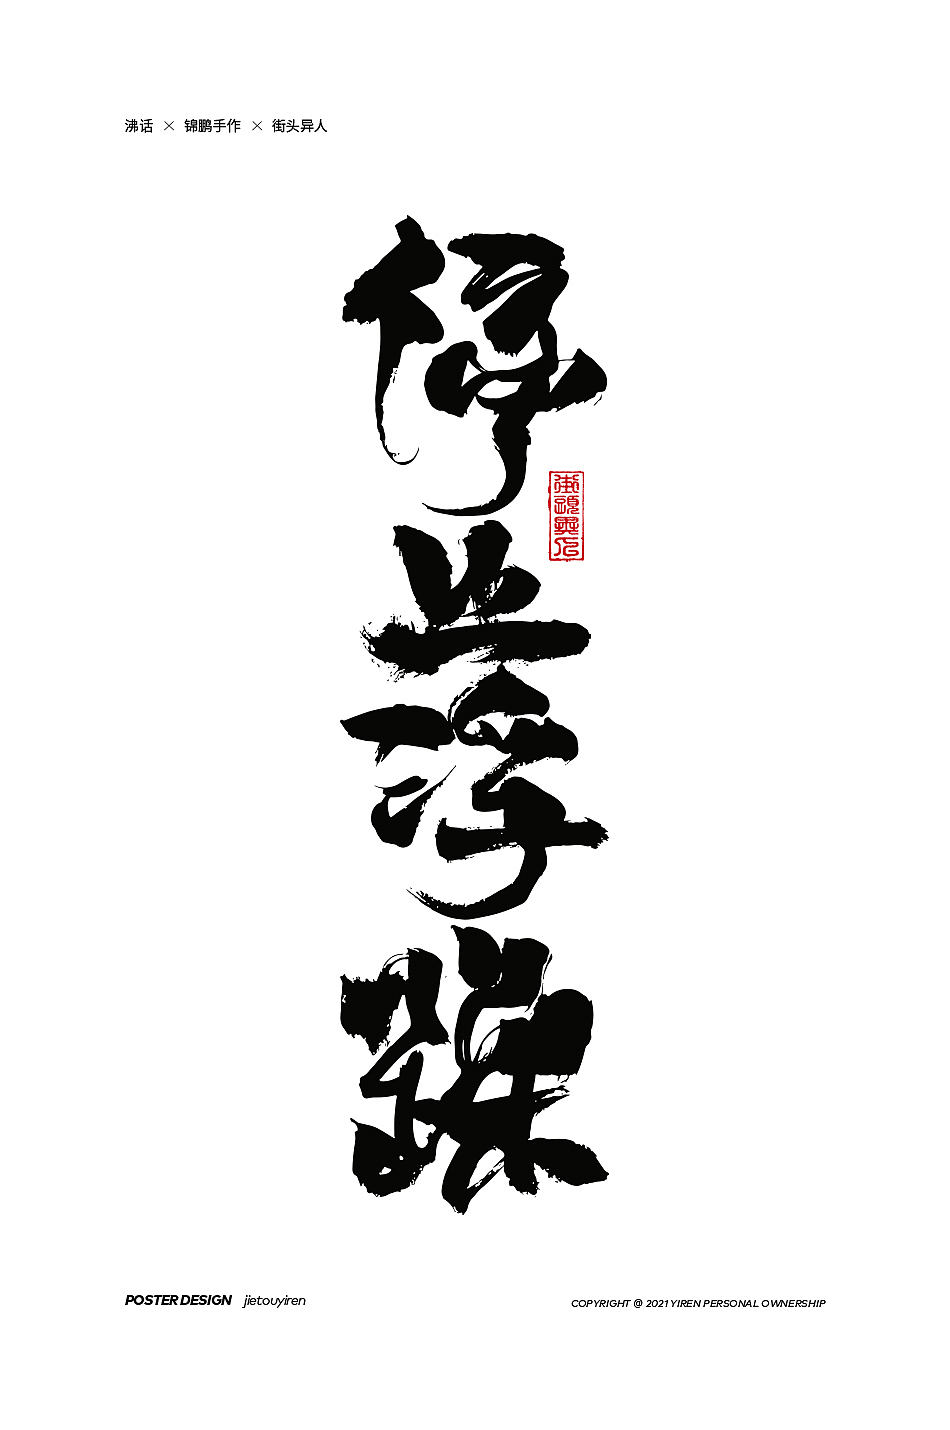 沸话 × 锦鹏手作 × 街头异人
停止浮躁
街頭異人
POSTER DESIGN jietouyiren
COPYRIGHT @ 2021 YIREN PERSONAL OWNERSHIP